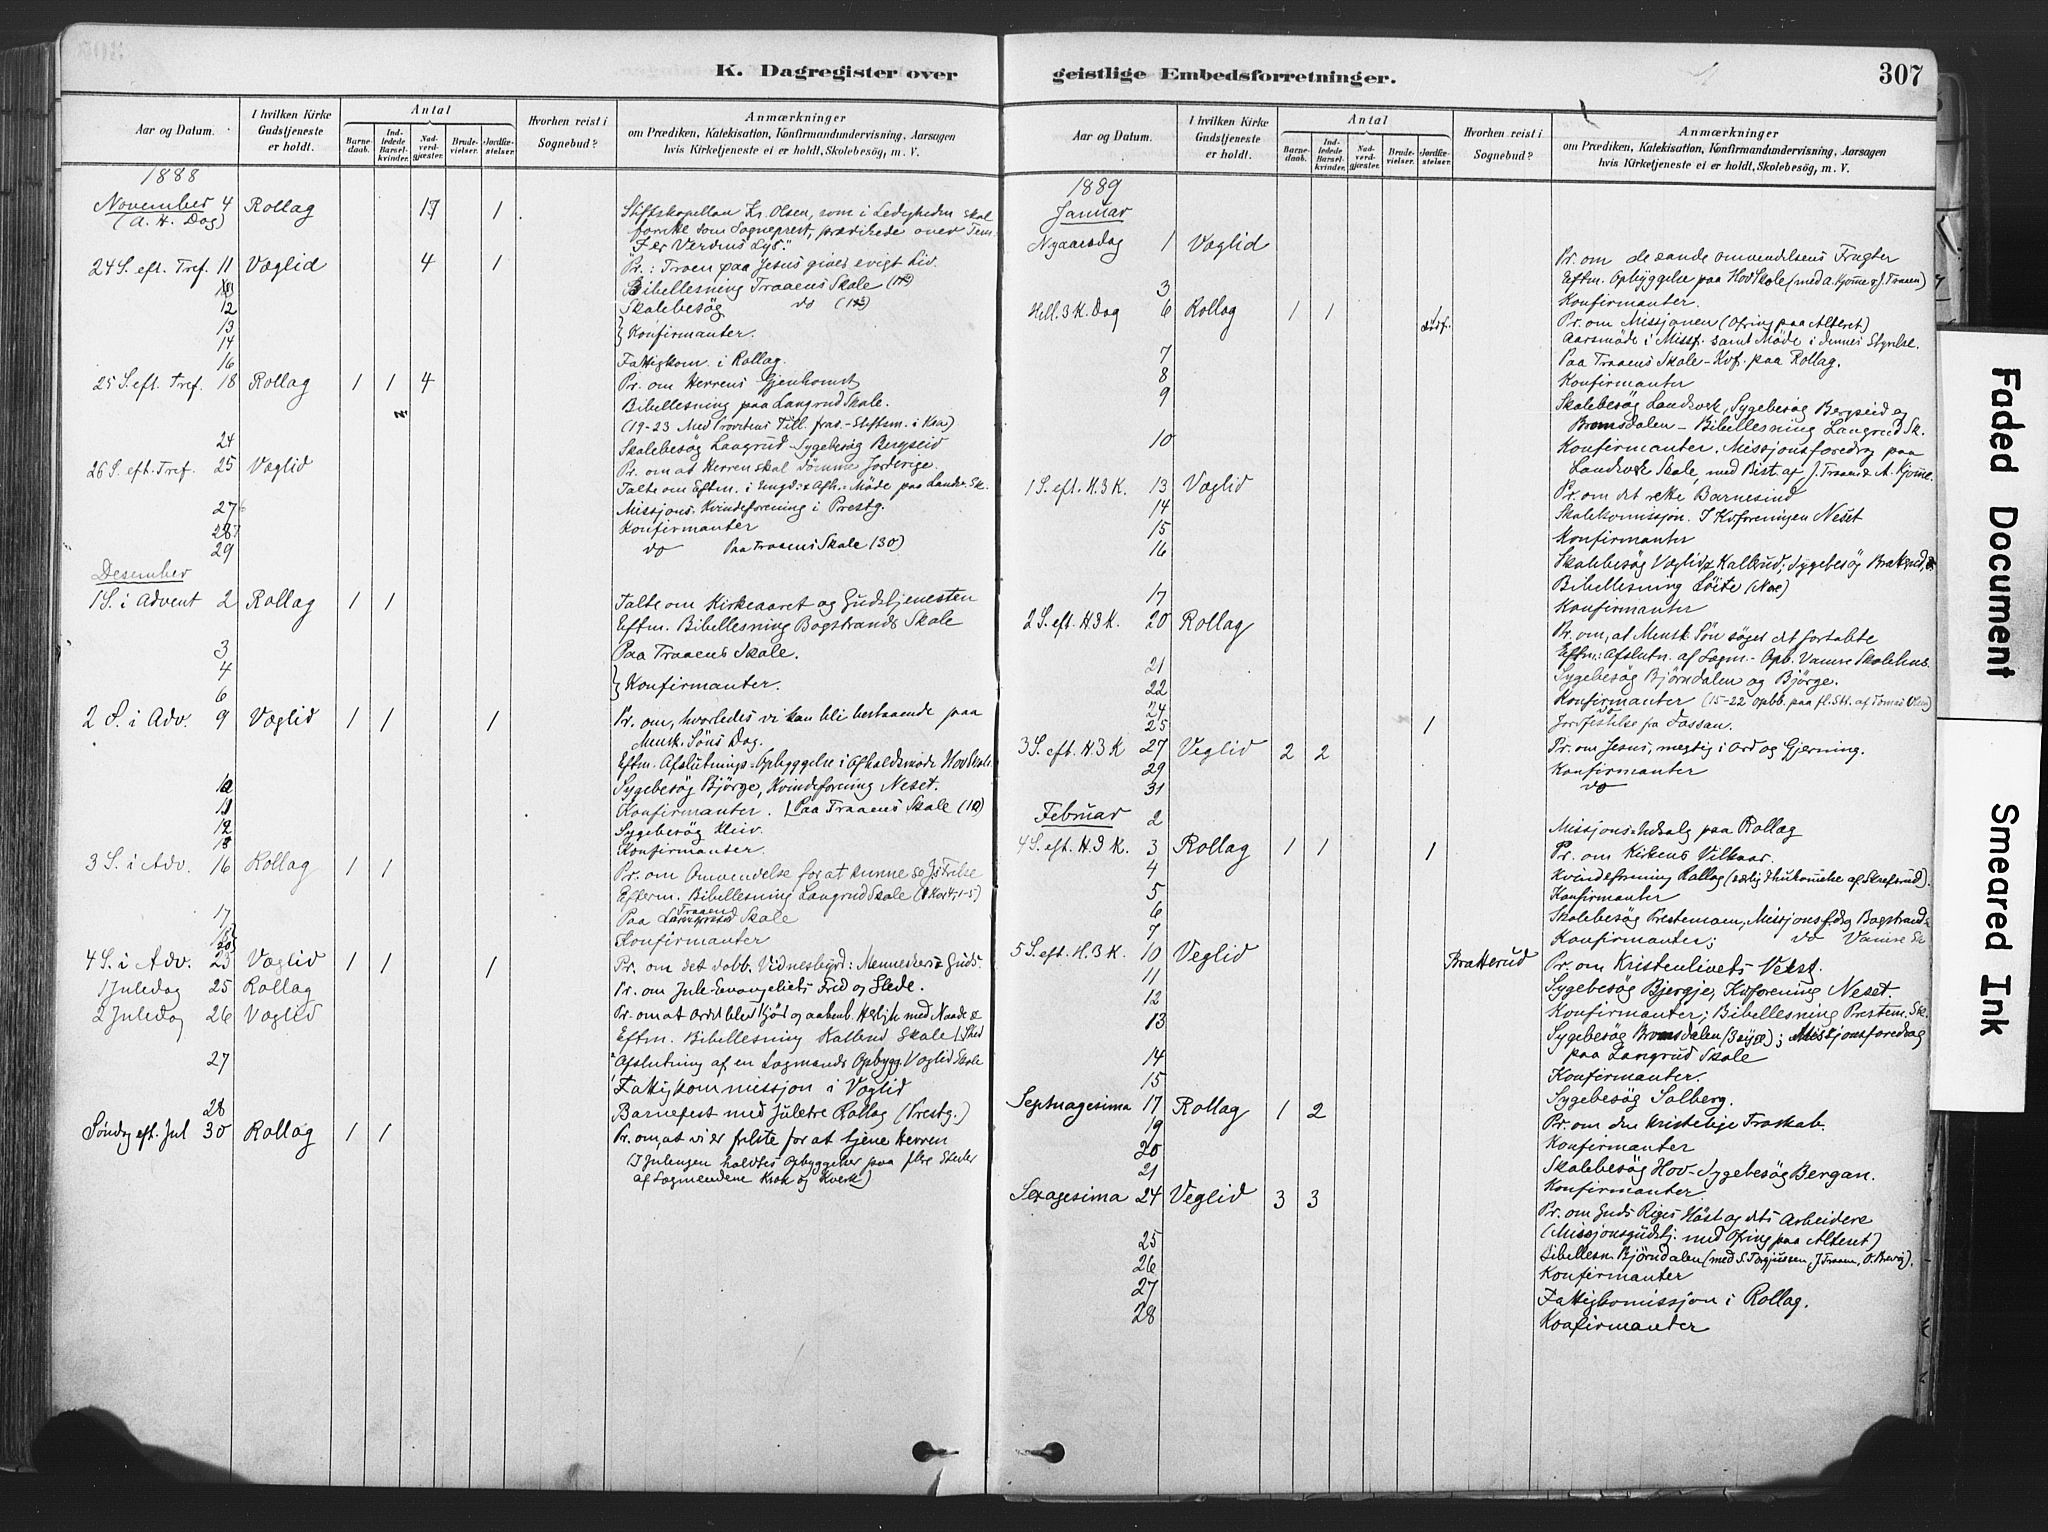 K. Dagregister over
Aar og Datum.
I hvilken Kirke Gudstjeneste er holdt.
Antal
Barnedaab.
Indledede Barselkvinder.
Nadverdgjæster.
Brudevielser.
Jordfæstelser.
Hvorhen reist i Sognebud?
Anmærkninger
om Prædiken, Katekisation, Konfirmandundervisning, Aarsagen
hvis Kirketjeneste ei er holdt, Skolebesøg, m. V.
1888
November 4 Rollag 17 1 Stiftskapellan Kr. Olsen, som i Ledigheden skal
(A. H. Dag) som Sogneprest, prædikede over Tem.
Verdens Lys."
24 S. eft. Tref. 11 Væglid 4 1 Pr.: Troen paa Jesus giver evigt Liv.
Bibellesning Traaens Skole
12 Skolebesøg do
13 Konfirmanter.
14
16 Fattigkom. i Rollag.
25 S. eft. Tref. 18 Rollag 1 1 4 Pr. om Herrens Gjenkomst
Bibellesning paa Langrud Skole.
24 Skolebesøg Langrud - Sygebesøg Bergseid
26 S. eft. Tref. 25 Væglid Pr. om at Herren skal dømme
Talte om Eftm. i Møde paa Landv. Sk.
27 Missjons-Kvindeforening i Prestg.
28 Konfirmanter
29 do Paa Traaens Skole (30)
Desember
1 S. i Advent 2 Rollag 1 1 Talte om Kirkeaaret og Gudstjenesten
Eftm. Bibellesning Bogstrands Skole
3 Paa Traaens Skole.
4 Konfirmanter.
6
2 S. i Adv. 9 Væglid 1 1 1 Pr. om, hvorledes vi kan bli bestaaende paa
Mensk. Søns Dag.
Eftm. Afslutnings-Opbyggelse i Afholdsmøde Hov Skole
10 Sygebesøg Bjørge, Kvindeforening Neset.
11 Konfirmanter. Paa Traaens Skole (10)
12 Sygebesøg
13 Konfirmanter.
3 S. i Adv. 16 Rollag 1 1 Pr. om Omvendelse for at kunne se Js Frelse
Efterm. Bibellesning Langrud Skole
17 Paa Traaens Skole
Konfirmanter
4 S. i Adv. 23 Væglid 1 1 1 Pr. om det dobb. Vidnesbyrd: Menneskers & Guds.
1 Juledag 25 Rollag Pr. om Jule-Evangeliets Fred og Glede.
2 Juledag 26 Væglid Pr. om at Ordet blev Kjød og aabenb. Herligh. med Naade &
Eftm. Bibellesning Kallrud Skole
27 Afslutning af en Lægmands Opbygg. Væglid Skole
Fattigkommissjon i Væglid
28 Barnefest med Juletre Rollag (Prestg.)
Søndag eft. Jul 30 Rollag 1 1 Pr. om, at vi er frelste for at tjene Herren
(I Julen holdtes Opbyggelser paa flere Steder
af Lægmendene Krok og Kverk)
geistlige Embedsforretninger.
307
Aar og Datum.
I hvilken Kirke Gudstjeneste er holdt.
Antal
Barnedaab.
Indledede Barselkvinder.
Nadverdgjæster.
Brudevielser.
Jordfæstelser.
Hvorhen reist i Sognebud?
Anmærkninger
om Prædiken, Katekisation, Konfirmandundervisning, Aarsagen
hvis Kirketjeneste ei er holdt, Skolebesøg, m. V.
1889
Januar
Nyaarsdag 1 Væglid Pr. om de sande omvendelsens Frugter
Eftm. Opbyggelse paa Hov Skole (med A. Kjøme & J. Traaen)
3 Konfirmanter.
Hell. 3 K. Dag 6 Rollag 1 1 Pr. om Missjonen (Ofring paa Alteret)
Aarsmøde i Missf. samt Møde i dennes Styrelse.
7 Paa Traaens Skole - Kvf. paa Rollag.
8 Konfirmanter
9 Skolebesøg Landverk, Sygebesøg Bergseid og
Bromsdalen - Bibellesning Langrud Sk.
10 Konfirmanter. Missjonsforedrag paa
Landverk Skole, med Bist. af J. Traaen & A. Kjøme.
1 S. eft. H. 3 K. 13 Væglid Pr. om det rette Barnesind
14 Skolekomissjon. I Kvforeningen Neset
15 Konfirmanter
16 Skolebesøg Væglid & Kallrud; Sygebesøg
Bibellesning Løite
17 Konfirmanter
2 S. eft. H. 3 K. 20 Rollag Pr. om, at Mensk. Søn søger det fortabte
Eftm.: Afslutn. af Lægm.-Opb. Vamre Skolehus.
21 Sygebesøg Bjørndalen og Bjørge.
22 Konfirmanter
24 do
25 1 Jordfestelse fra Fossan.
3 S. eft. H. 3 K 27 Veglid 2 2 Pr. om Jesus, megtig i Ord og Gjerning.
29 Konfirmanter
31 do
Februar 2 Missjons-Udsalg paa Rollag
4 S. eft. H. 3 K. 3 Rollag 1 1 1 Pr. om Kirkens Vilkaar.
4 Kvindeforening Rollag
5 Konfirmanter
6 Skolebesøg Prestemoen, Missjonsfdrg Bogstrand
7 Konfirmanter; do Vamre Sk
5 S. eft. H. 3 K. 10 Veglid Bratterud Pr. om Kristenlivets Vekst.
11 Sygebesøg Bjergje, Kvforening Neset.
12 Konfirmanter; Bibellesning Prestem. Sk.
13 Sygebesøg Bromsdalen; Missjonsforedrag
paa Langrud Skole
14 Konfirmanter.
15 Sygebesøg Solberg.
Septuagesima 17 Rollag 1 2 Pr. om den kristelige Troskab.
19 Konfirmanter
20 Skolebesøg Hov - Sygebesøg Bergan.
21 Konfirmanter.
Sexagesima 24 Veglid 3 3 Pr. om Guds Riges Høst og dets Arbeidere
(Missjonsgudstj. med Ofring paa Alteret)
25 Bibellesn. Bjørndalen (med S. Torgjussen, J. Traaen, O. Brevig).
26 Konfirmanter
27 Fattigkomissjon i Rollag.
28 Konfirmanter
Faded Document
Smeared Ink